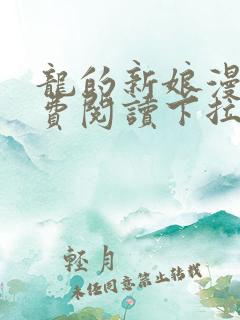 龍的新娘漫
費閱讀下拉
輕月
未經同意禁止轉載